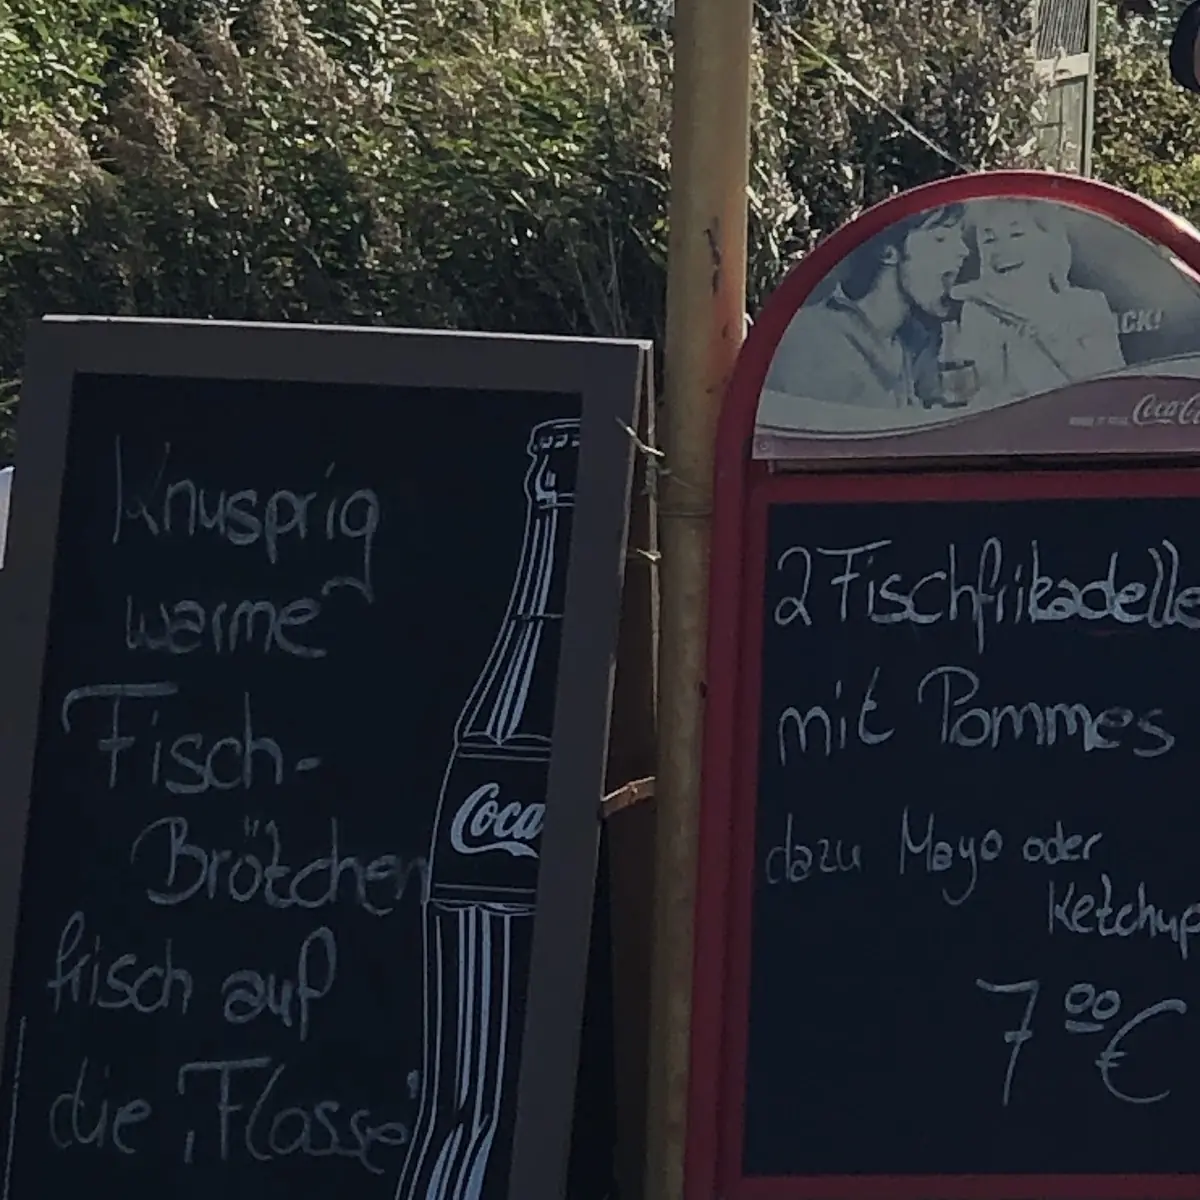 Knusprig
warme
Fisch-
Brötchen
frisch auf
die 'Flosse'
Coca
ACK!
Coca-C
2 Fischfrikadelle
mit Pommes
dazu Mayo oder
Ketchup
7,00 €